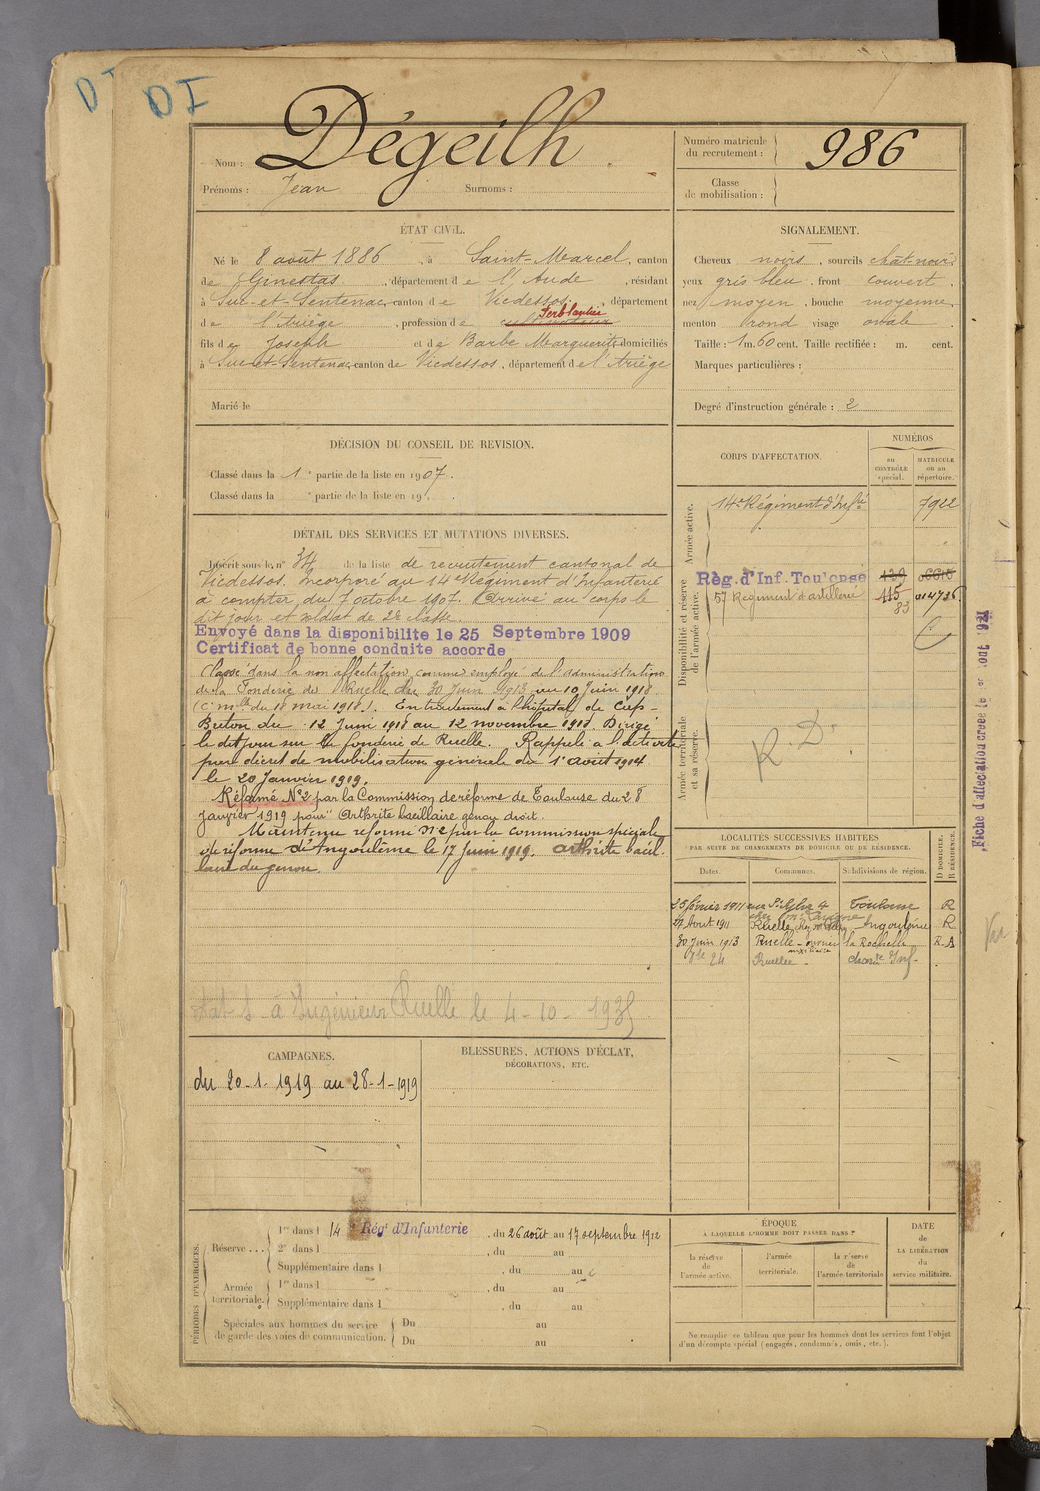 DI
DI
Nom : Dégeilh.
Prénoms : Jean Surnoms :
Numéro matricule du recrutement : 986
Classe de mobilisation :
ÉTAT CIVIL.
Né le 8 août 1886, à Saint-Marcel, canton
de Ginestas, département de l'Aude, résidant
à Suc-et-Sentenac, canton de Vicdessos, département
de l'Ariège, profession de cultivateur Ferblantier
fils de Joseph et de Barbe Marguerite domiciliés
à Suc-et-Sentenac, canton de Vicdessos, département de l'Ariège
Marié le
SIGNALEMENT.
Cheveux noirs, sourcils chât-noirs,
yeux gris bleu, front couvert,
nez moyen, bouche moyenne,
menton rond visage ovale.
Taille : 1 m. 60 cent. Taille rectifiée : m. cent.
Marques particulières :
Degré d'instruction générale : 2
DÉCISION DU CONSEIL DE REVISION.
Classé dans la 1e partie de la liste en 1907.
Classé dans la e partie de la liste en 19 .
DÉTAIL DES SERVICES ET MUTATIONS DIVERSES.
Inscrit sous le n° 34 de la liste de recrutement cantonal de
Vicdessos. Incorporé au 14e Régiment d'Infanterie
à compter du 7 octobre 1907. Arrivé au corps le
dit jour et soldat de 2e classe.
Envoyé dans la disponibilite le 25 Septembre 1909
Certificat de bonne conduite accorde
Classé dans la non affectation comme employé de l'administration
de la Fonderie de Ruelle du 30 Juin 1913 au 10 Juin 1918
(C. mlle du 18 mai 1918). En traitement à l'hôpital de Cap-
Breton du 12 Juin 1918 au 12 novembre 1918. Dirigé
le dit jour sur la fonderie de Ruelle. Rappelé à l'activité
par décret de mobilisation générale du 1er août 1914
le 20 Janvier 1919.
Réformé N°2 par la Commission de réforme de Toulouse du 28
Janvier 1919 pour "Arthrite bacillaire genou droit.
Maintenu réformé N°2 par la commission spéciale
de réforme d'Angoulême le 17 Juin 1919. Arthrite bacil-
laire du genou.
à Ingénieur Ruelle le 4-10-1935
CORPS D'AFFECTATION.
NUMÉROS
au CONTRÔLE spécial.
MATRICULE ou au répertoire.
Armée active.
14e Régiment d'Infie 7922
Disponibilité et réserve de l'armée active.
Rég. d'Inf. Toulouse 139
57 Régiment d'artillerie 115 014736
83
Armée territoriale et sa réserve.
R.D.
Fiche d'affectation créée le 1er août 1921
LOCALITÉS SUCCESSIVES HABITÉES
PAR SUITE DE CHANGEMENTS DE DOMICILE OU DE RÉSIDENCE.
Dates. Communes. Subdivisions de région. D DOMICILE. R RÉSIDENCE.
25 février 1911 Toulouse R
27 Août 1911 Ruelle Angoulême R
30 Juin 1913 Ruelle la Rochelle R.A
24 Ruelle
CAMPAGNES.
du 20-1-1919 au 28-1-1919
BLESSURES, ACTIONS D'ÉCLAT,
DÉCORATIONS, ETC.
PÉRIODES D'EXERCICES.
Réserve ...
1re dans l 14e Régt d'Infanterie, du 26 août au 17 septembre 1912
2e dans l , du au
Supplémentaire dans l , du au
Armée territoriale.
1re dans l , du au
Supplémentaire dans l , du au
Spéciales aux hommes du service de garde des voies de communication.
Du au
Du au
ÉPOQUE
À LAQUELLE L'HOMME DOIT PASSER DANS :
la réserve de l'armée active.
l'armée territoriale.
la réserve de l'armée territoriale
DATE DE LA LIBÉRATION du service militaire.
Ne remplir ce tableau que pour les hommes dont les services font l'objet
d'un décompte spécial (engagés, condamnés, omis, etc.).